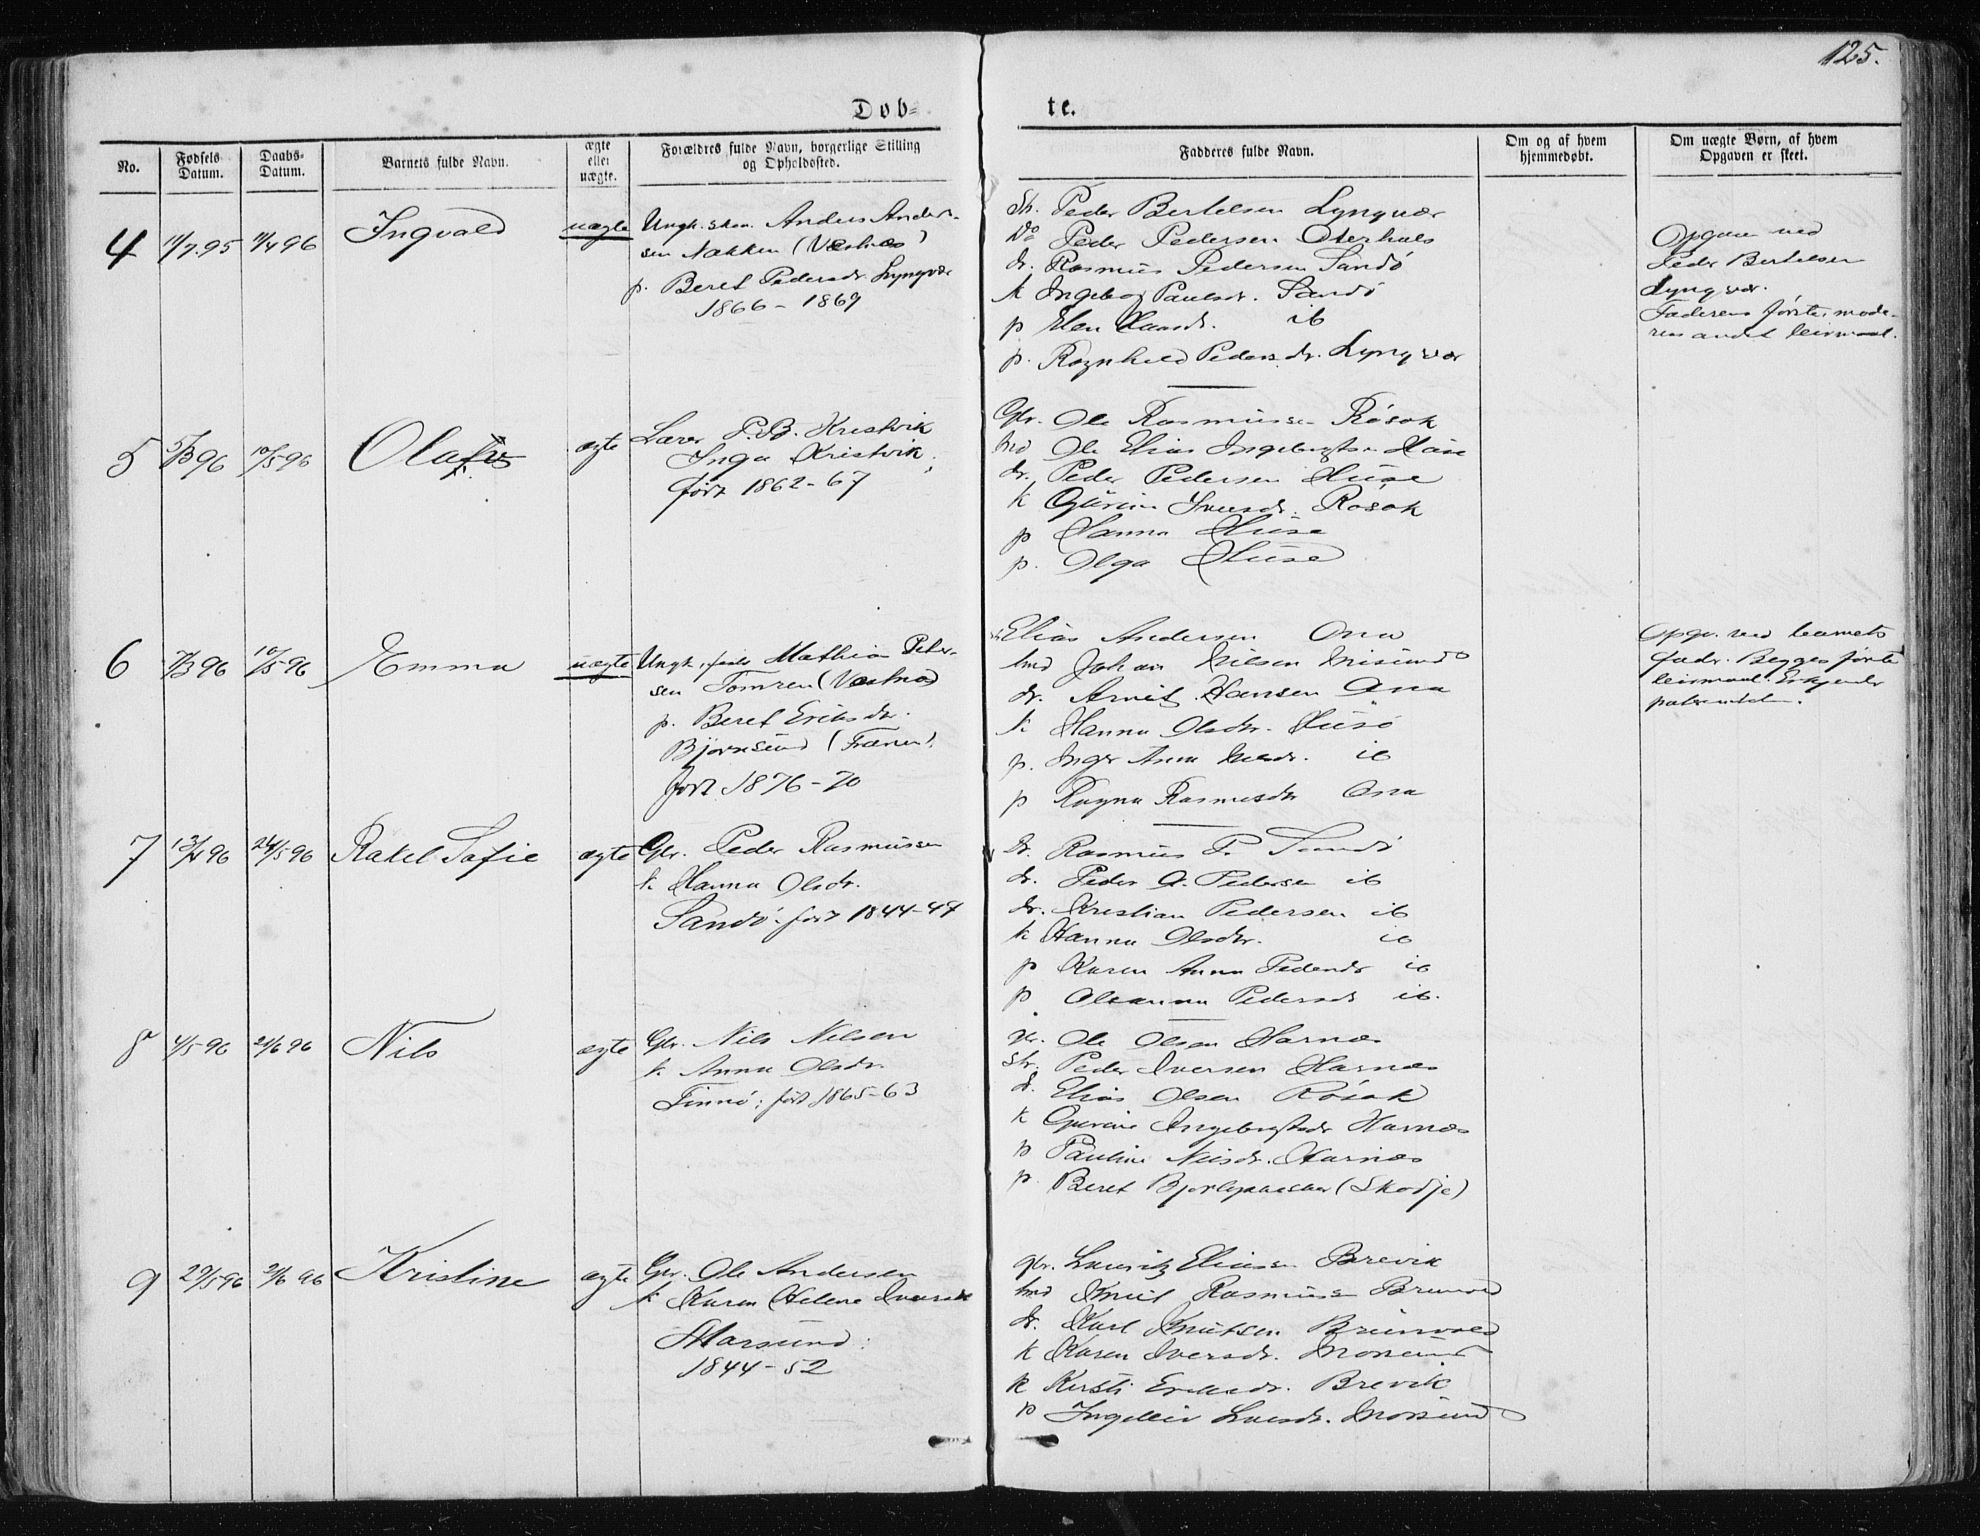 125.
Døb-
te.
No.
Fødsels Datum.
Daabs- Datum.
Barnets fulde Navn.
ægte eller uægte.
Forældres fulde Navn, borgerlige Stilling og Opholdssted.
Fadderes fulde Navn.
Om og af hvem hjemmedøbt.
Om uægte Børn, af hvem Opgaven er skeet.
4 11/7.95 11/4 96 Ingvald uægte
Ungk. Anders Ander-
sen Nakken (Vestnæs)
p. Beret Pedersdr. Lyngvær
1866 - 1869
Peder Bertelsen Lyngvær
Do Peder Pedersen Oterhals
dr. Rasmus Pedersen Sandø
k Ingeborg Paulsdr. Sandø
p Elen Hansdr. ib
p. Ragnhild Pedersdr. Lyngvær
Opgave ved
Peder Bertelsen
Lyngvær.
Faderens første, mode-
rens andet leiermaal.
5 5/3 96 10/5 96 Olaf ægte
Lærer P. B. Kristvik
Inga Kristvik,
født 1862-67
Gbr. Ole Rasmussen Røsok
Ind Ole Elias Ingebrigtsen
dr. Peder Pedersen Huse
k Gurine Iversdr. Røsok
p Hanna Huse
p. Olga Huse
6 7/3 96 10/5 96 Emma uægte
Ungk. Mathias Peter-
sen Tomren (Vestnæs)
p. Beret Eriksdr.
Bjørnsund (Fræna).
født 1876-70
Elias Andersen Ona
Ind Johan Nilsen Misund
dr. Arnit Hansen Ona
k Hanna Olsdr. Husø
p. Inger Anna ib
p Ragna Rasmusdr Ona
Opgv. ved barnets
fadr. Begges første
leiermaal. Erkjender
7 13/4 96 24/5 96 Rakel Sofie ægte
Gbr. Peder Rasmussen
k. Hanna Olsdr.
Sandø. født 1844-47
Dr. Rasmus P. Sandø
dr. Peder A. Pedersen ib
dr. Kristian Pedersen ib
k Hanna Olsdr. ib
p Karen Anna Pedersdr ib
p Oleanna Pedersdr ib.
8 4/5 96 21/6 96 Nils ægte
Gbr. Nils Nilsen
k. Anna Olsdr.
Finnø: født 1865-63
Gbr. Ole Olsen Harnæs
Peder Iversen Harnæs
d. Elias Olsen Røsok
k Gurine Ingebrigtsdr Harnæs
p Pauline Nilsdr. Harnæs
p. Beret (Skodje)
9 29/5 96 21/6 96 Kristine ægte
Gbr. Ole Andersen
k Karen Helene Iversdr
Marsund:
1844-52
gbr. Lauritz Eliasen Brevik
Ind Knut Rasmussen Brunvold
dr. Karl Knutsen Brunvold
k Karen Iversdr. Morsund
k Kirsti Eriksdr. Brevik
p Ingeleiv Morsund